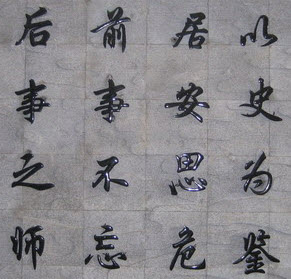 以史为鉴
居安思危
前事不忘
后事之师